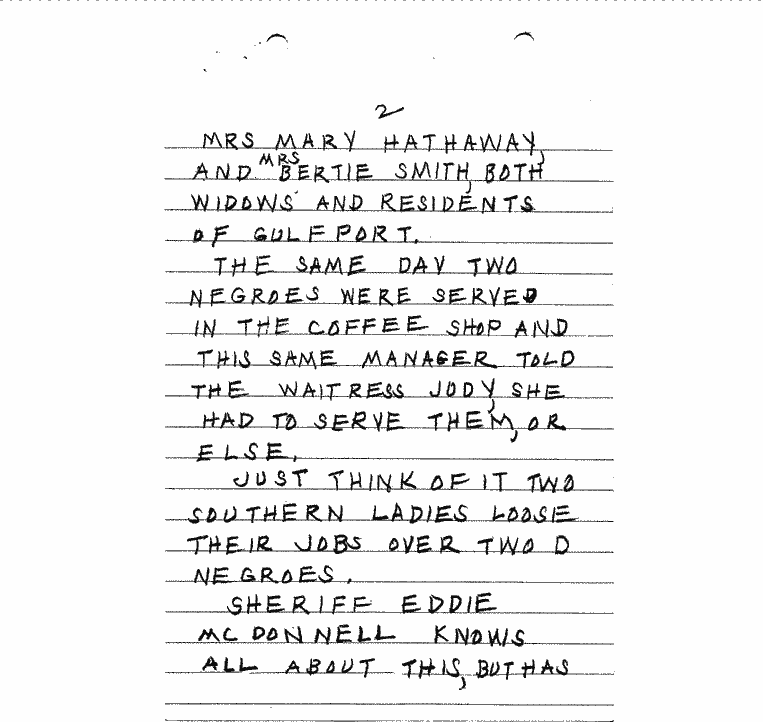 2
MRS MARY HATHAWAY,
AND MRS BERTIE SMITH, BOTH
WIDOWS AND RESIDENTS
OF GULFPORT.
THE SAME DAY TWO
NEGROES WERE SERVED
IN THE COFFEE SHOP AND
THIS SAME MANAGER TOLD
THE WAITRESS JODY, SHE
HAD TO SERVE THEM, OR
ELSE.
JUST THINK OF IT TWO
SOUTHERN LADIES LOOSE
THEIR JOBS OVER TWO D
NEGROES.
SHERIFF EDDIE
MCDONNELL KNOWS
ALL ABOUT THIS, BUT HAS